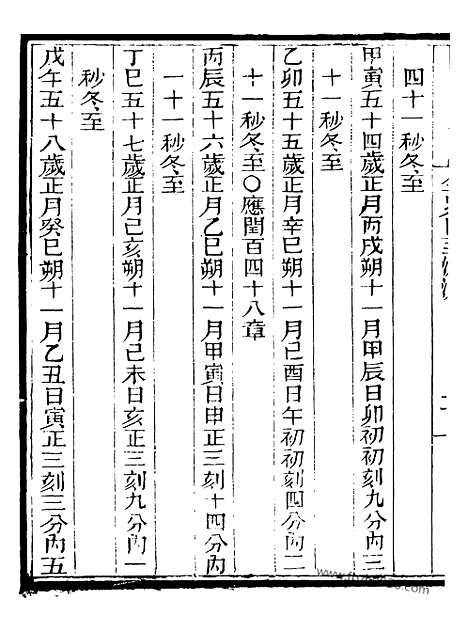 四十一秒冬至
甲寅五十四歲正月丙戌朔十一月甲辰日卯初初刻九分內三
十一秒冬至
乙卯五十五歲正月辛巳朔十一月己酉日午初初刻四分內二
十一秒冬至○應閏百四十八章
丙辰五十六歲正月乙巳朔十一月甲寅日申正三刻十四分內
一十一秒冬至
丁巳五十七歲正月己亥朔十一月己未日亥正三刻九分內一
秒冬至
戊午五十八歲正月癸巳朔十一月乙丑日寅正三刻三分內五